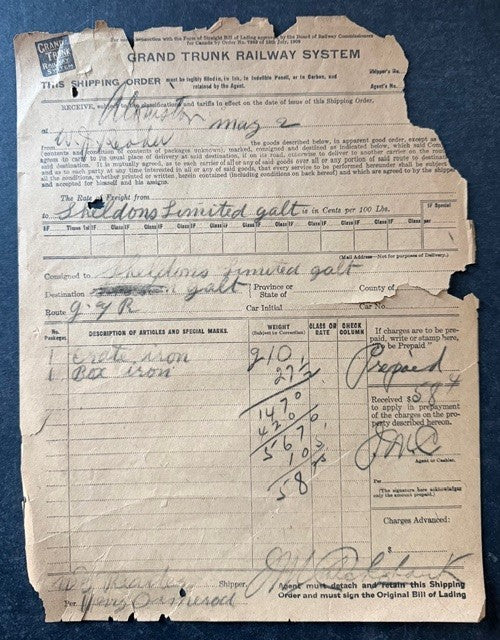 GRAND TRUNK RAILWAY SYSTEM
For use in connection with the Form of Straight Bill of Lading approved by the Board of Railway Commissioners
for Canada by Order No. 7562 of 15th July, 1909
GRAND TRUNK RAILWAY SYSTEM
THIS SHIPPING ORDER must be legibly filled in, in Ink, in Indelible Pencil, or in Carbon, and
retained by the Agent.
Shipper's No.
Agent's No.
RECEIVE, subject to the classifications and tariffs in effect on the date of issue of this Shipping Order.
at May 2
from the goods described below, in apparent good order, except as
noted (contents and condition of contents of packages unknown), marked, consigned and destined as indicated below, which said Company
agrees to carry to its usual place of delivery at said destination, if on its road, otherwise to deliver to another carrier on the route
to said destination. It is mutually agreed, as to each carrier of all or any of said goods over all or any portion of said route to destination,
and as to each party at any time interested in all or any of said goods, that every service to be performed hereunder shall be subject to
all the conditions, whether printed or written, herein contained (including conditions on back hereof) and which are agreed to by the shipper
and accepted for himself and his assigns.
The Rate of Freight from
to Sheldons Limited galt is in Cents per 100 Lbs.
IF Special
IF Times 1st IF Class IF Class IF Class IF Class IF Class IF Class IF Class per
per
(Mail Address—Not for purposes of Delivery.)
Consigned to Sheldons Limited galt
Destination galt Province or State of County of
Route G T R Car Initial Car No.
No. Packages. DESCRIPTION OF ARTICLES AND SPECIAL MARKS. WEIGHT (Subject to Correction) CLASS OR RATE CHECK COLUMN
1 Crate iron 210
1 Box iron 272
1470
420
5670
10
58
If charges are to be prepaid, write or stamp here, "To be Prepaid"
Prepaid
Received $ 58
to apply in prepayment of the charges on the property described hereon.
Agent or Cashier.
Per
(The signature here acknowledges only the amount prepaid.)
Charges Advanced:
$
Shipper.
Per
Agent must detach and retain this Shipping
Order and must sign the Original Bill of Lading